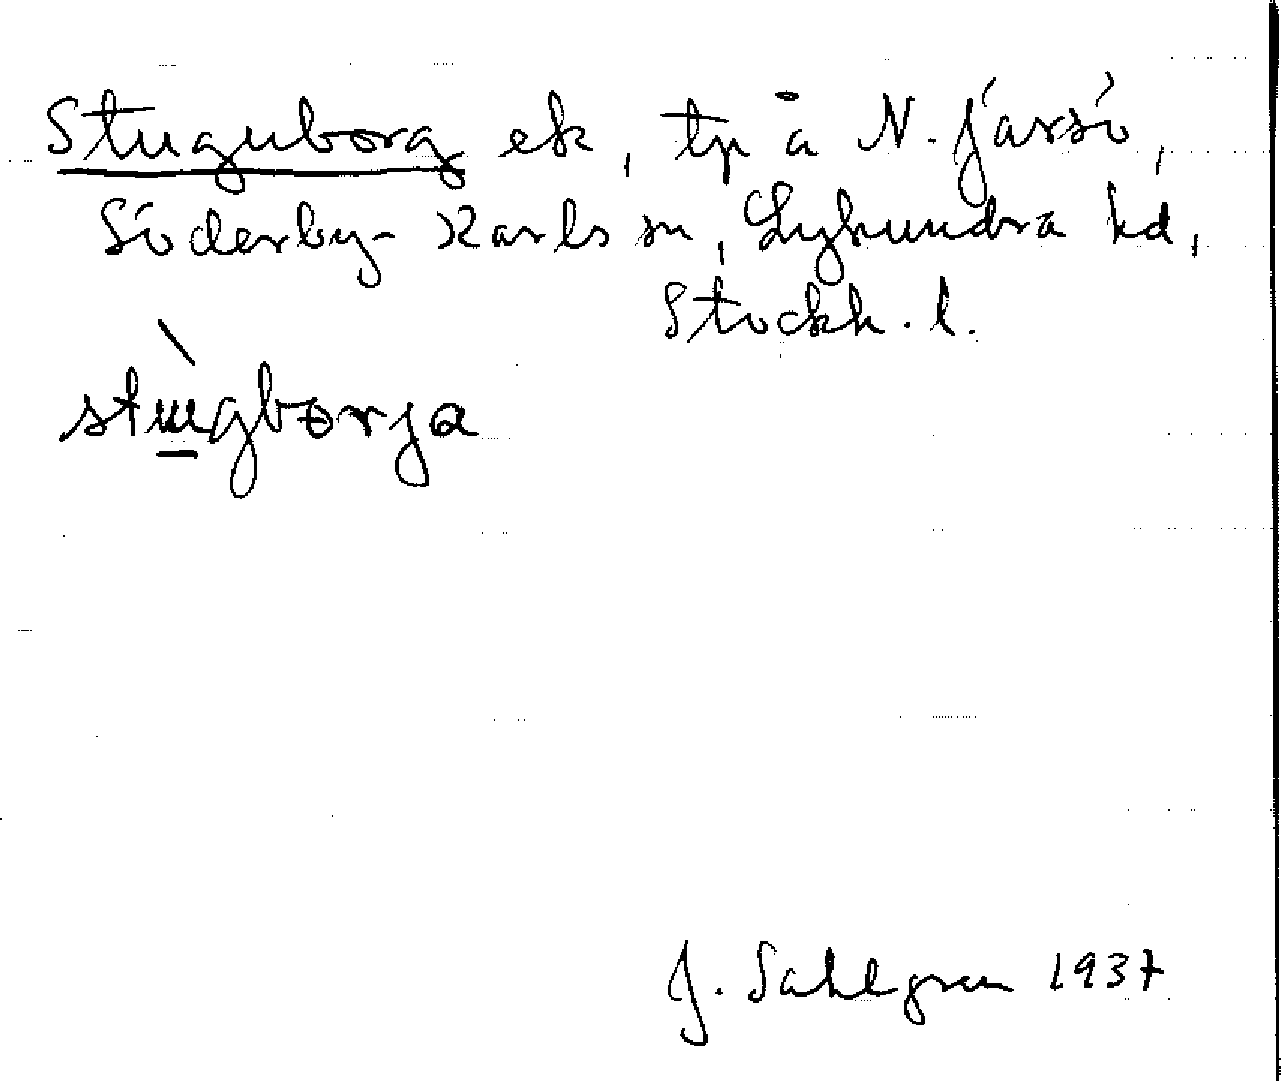 Stuguborg ek, tp å N. Järsö,
Söderby-Karls sn, Lyhundra hd,
Stockh. l.
stùgborja
J. Sahlgren 1937